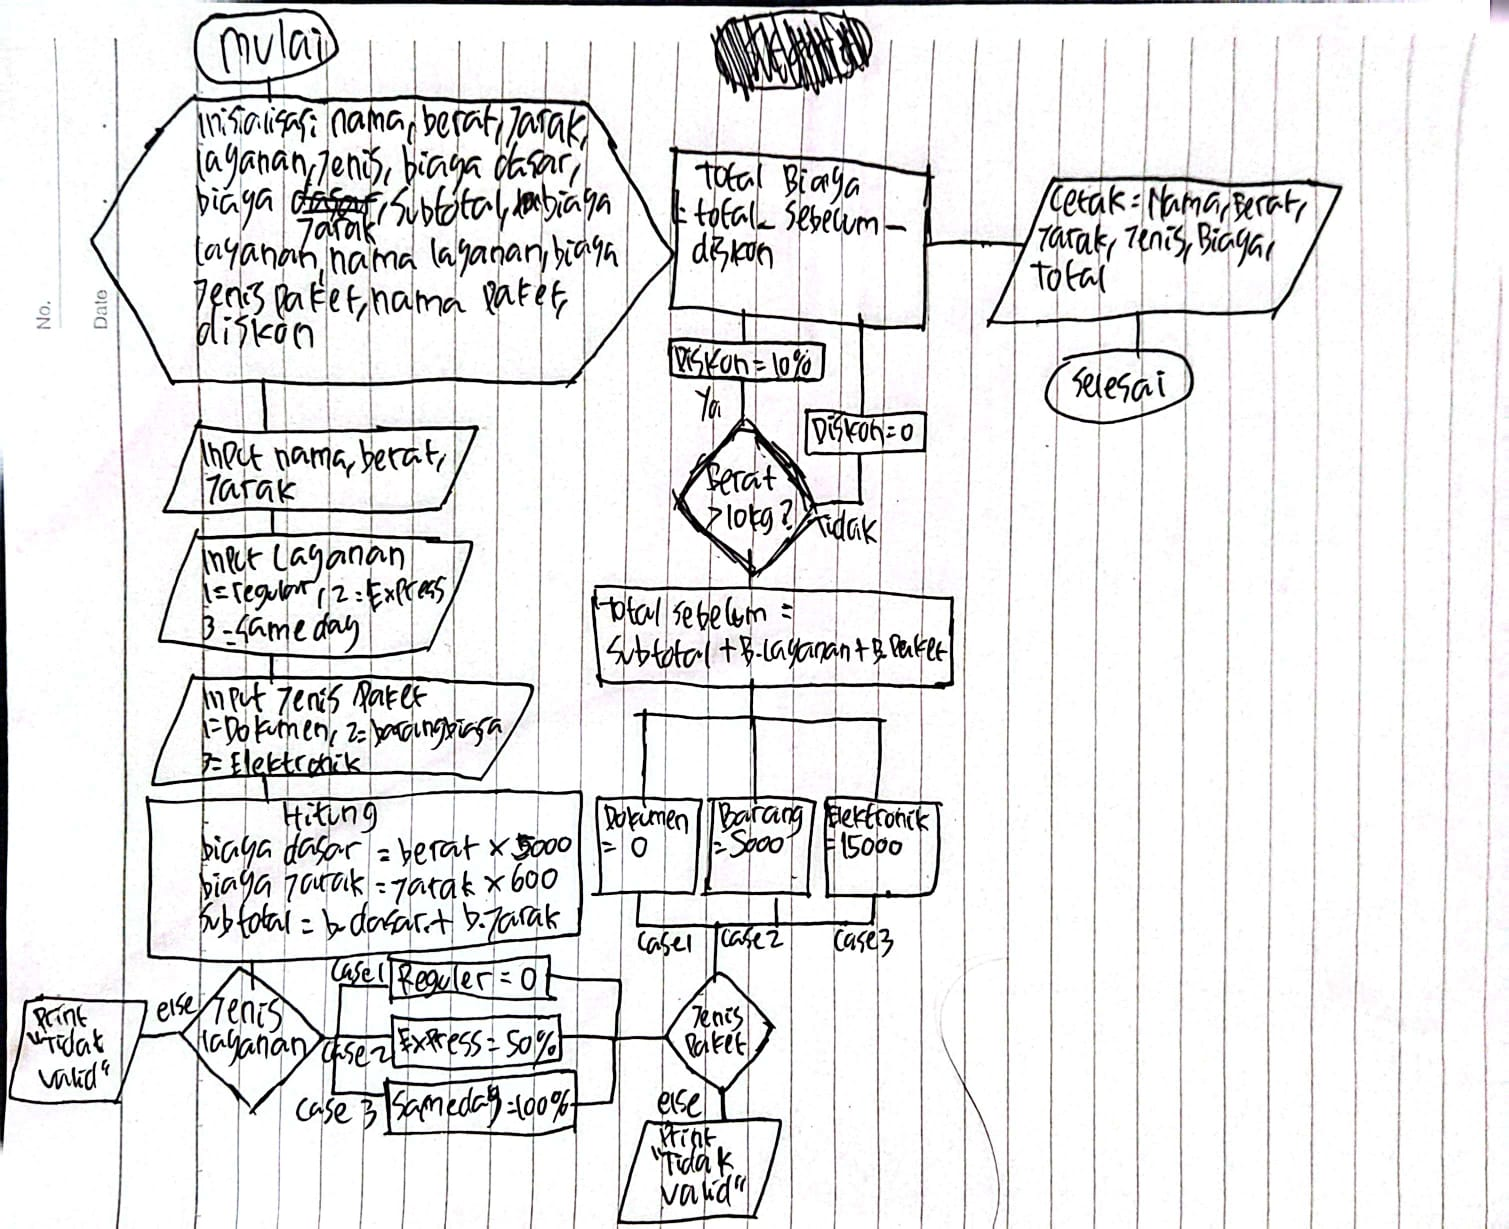 No.
Date
mulai
Inisialisasi nama, berat, Jarak,
layanan, Jenis, biaya dasar,
biaya Jarak, subtotal, biaya
layanan, nama layanan, biaya
Jenis paket, nama paket,
diskon
Input nama, berat,
Jarak
Input Layanan
1=reguler, 2=Express
3=sameday
Input Jenis Paket
1=Dokumen, 2=barang biasa
3=Elektronik
Hitung
biaya dasar = berat x 5000
biaya Jarak = Jarak x 600
Subtotal = b.dasar + b.Jarak
Jenis
layanan
else
Print
"Tidak
valid"
Case1
Reguler = 0
Case2
Express = 50%
Case 3
Sameday = 100%
Jenis
Paket
else
Print
"Tidak
valid"
Case1
Case2
Case3
Dokumen
= 0
Barang
= 5000
Elektronik
= 15000
total sebelum =
Subtotal + B.layanan + B.Paket
Berat
>10kg?
Ya
Tidak
Diskon = 10%
Diskon = 0
total Biaya
= total_sebelum -
diskon
Cetak = Nama, Berat,
Jarak, Jenis, Biaya,
total
selesai